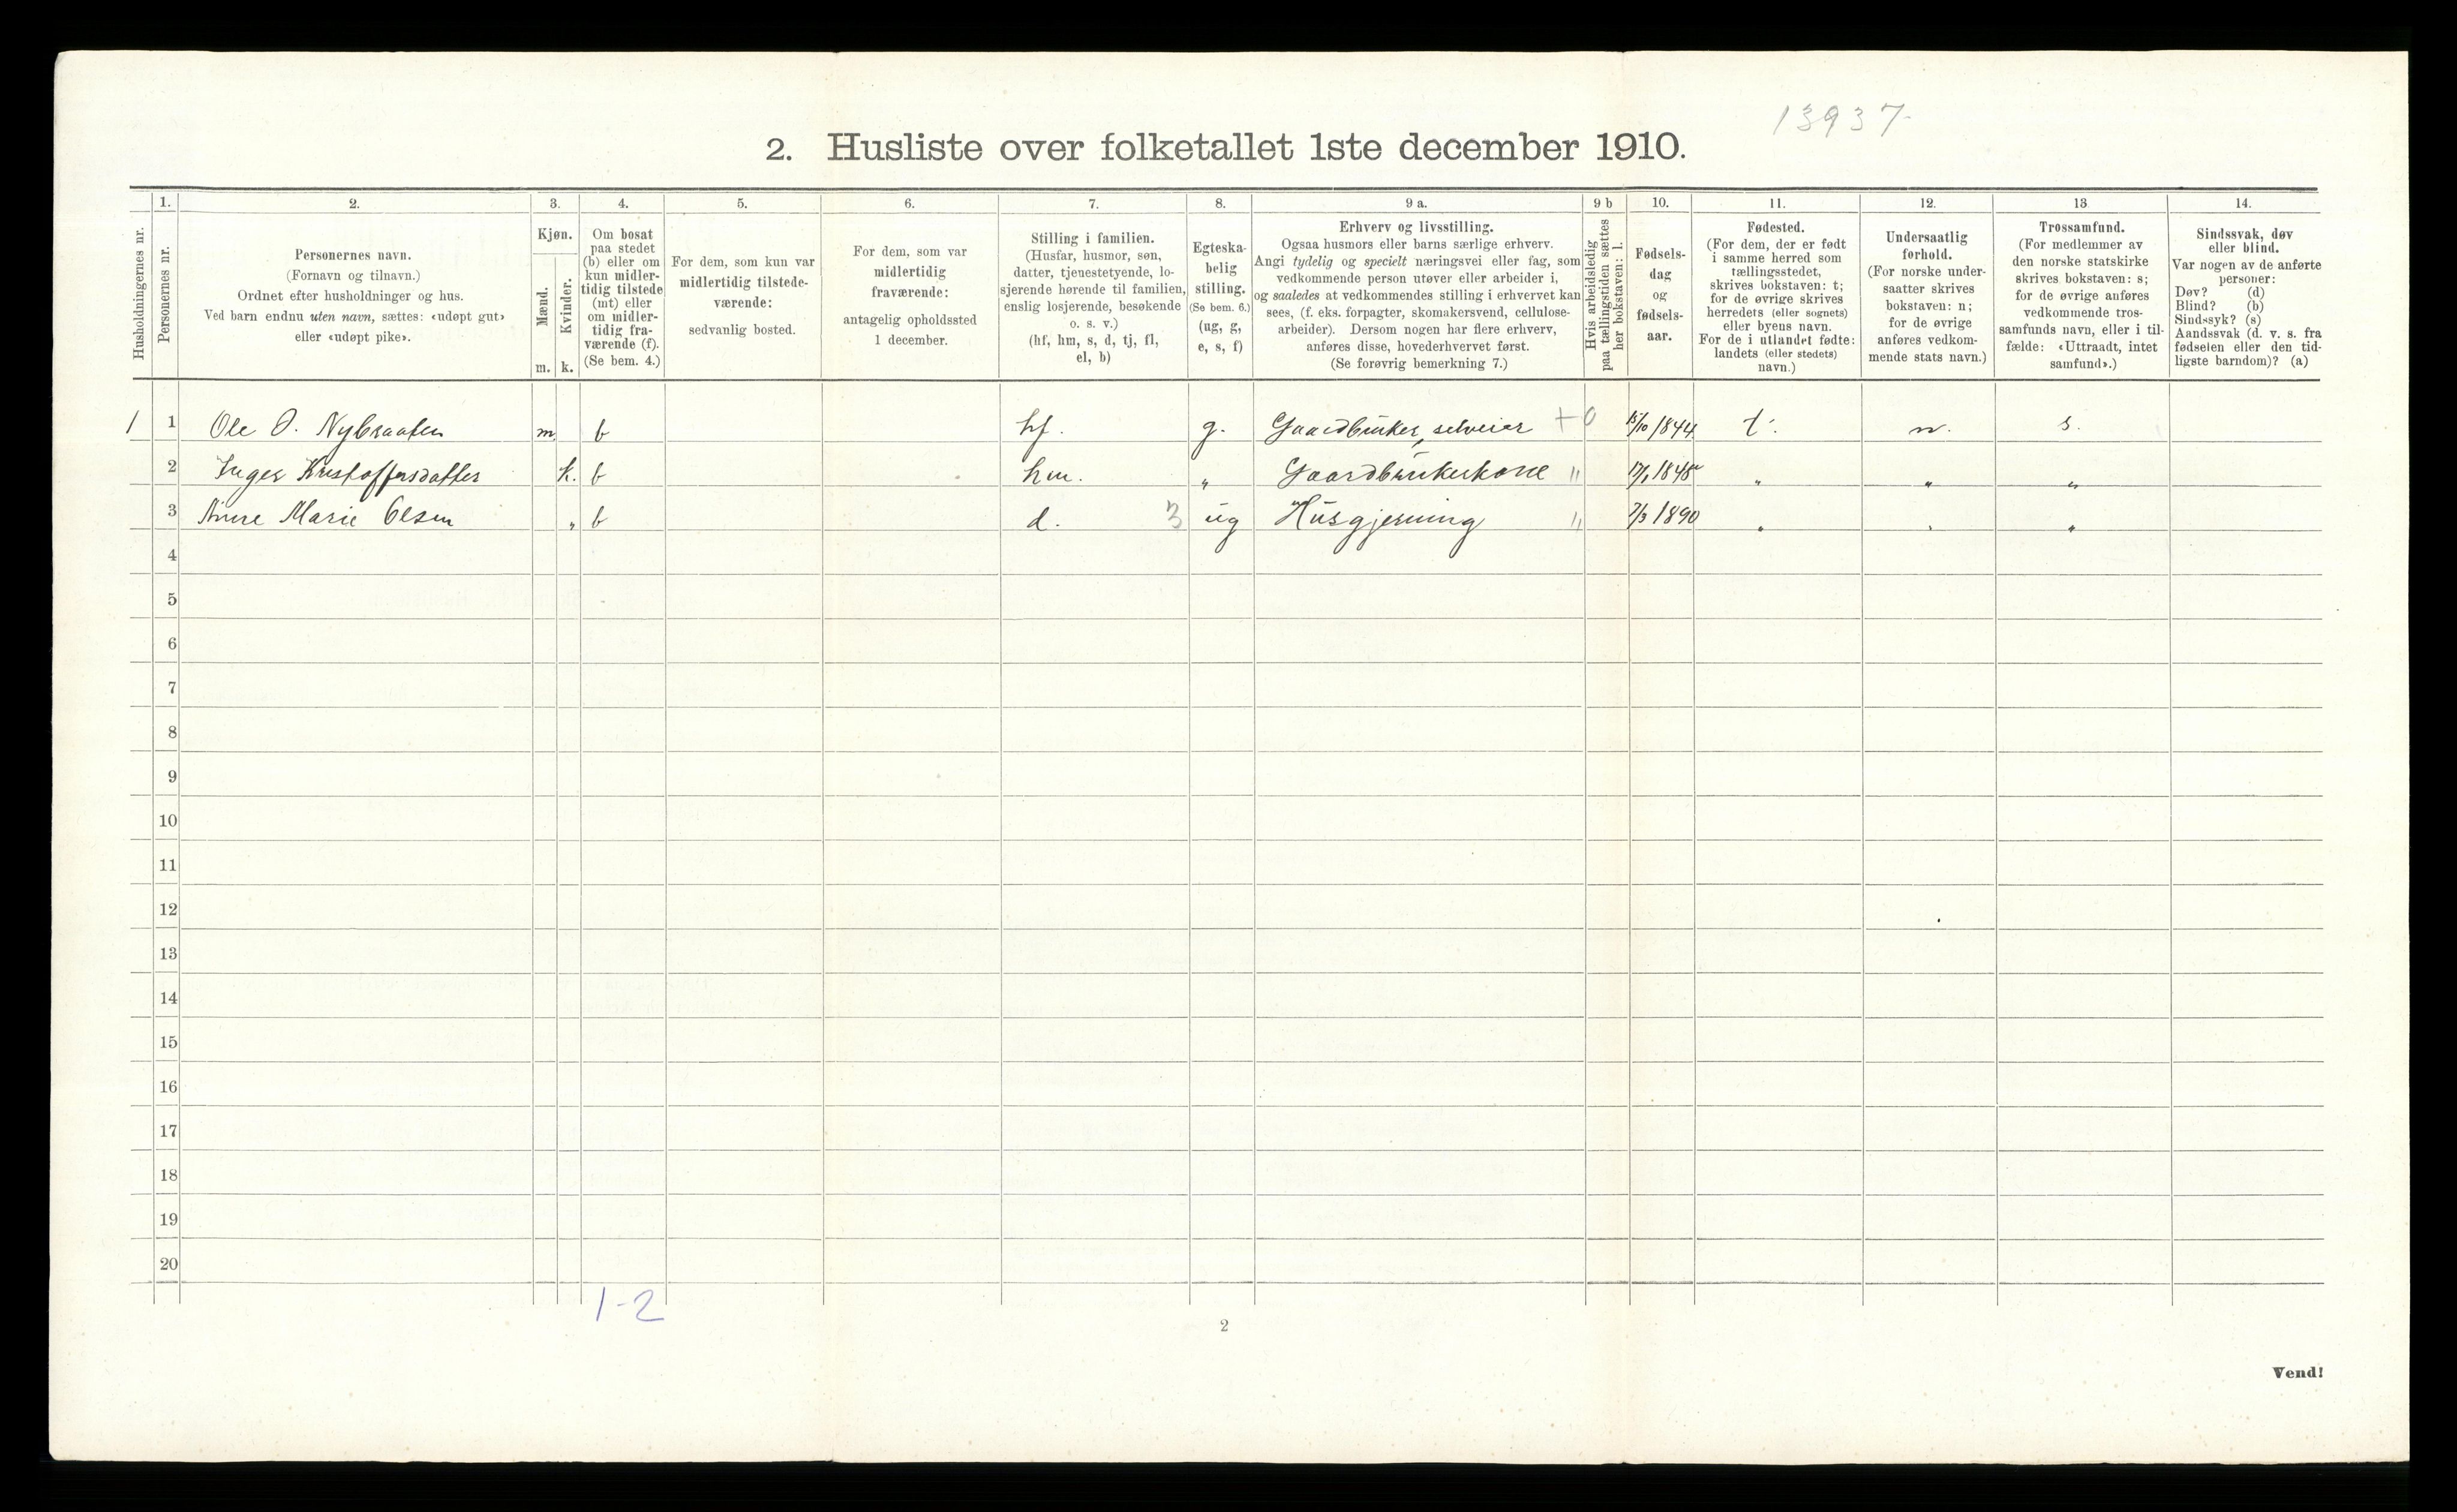 13937
2. Husliste over folketallet 1ste december 1910.
Husholdningernes nr.
1.
Personernes nr.
2.
Personernes navn.
(Fornavn og tilnavn.)
Ordnet efter husholdninger og hus.
Ved barn endnu uten navn, sættes: «udøpt gut»
eller «udøpt pike».
3.
Kjøn.
Mænd.
Kvinder.
m. k.
4.
Om bosat
paa stedet
(b) eller om
kun midler-
tidig tilstede
(mt) eller
om midler-
tidig fra-
værende (f).
(Se bem. 4.)
5.
For dem, som kun var
midlertidig tilstede-
værende:
sedvanlig bosted.
6.
For dem, som var
midlertidig
fraværende:
antagelig opholdssted
1 december.
7.
Stilling i familien.
(Husfar, husmor, søn,
datter, tjenestetyende, lo-
sjerende hørende til familien,
enslig losjerende, besøkende
o. s. v.)
(hf, hm, s, d, tj, fl,
el, b)
8.
Egteska-
belig
stilling.
(Se bem. 6.)
(ug, g,
e, s, f)
9 a.
Erhverv og livsstilling.
Ogsaa husmors eller barns særlige erhverv.
Angi tydelig og specielt næringsvei eller fag, som
vedkommende person utøver eller arbeider i,
og saaledes at vedkommendes stilling i erhvervet kan
sees, (f. eks. forpagter, skomakersvend, cellulose-
arbeider). Dersom nogen har flere erhverv,
anføres disse, hovederhvervet først.
(Se forøvrig bemerkning 7.)
9 b
Hvis arbeidsledig
paa tællingstiden sættes
her bokstaven: l.
10.
Fødsels-
dag
og
fødsels-
aar.
11.
Fødested.
(For dem, der er født
i samme herred som
tællingsstedet,
skrives bokstaven: t;
for de øvrige skrives
herredets (eller sognets)
eller byens navn.
For de i utlandet fødte:
landets (eller stedets)
navn.)
12.
Undersaatlig
forhold.
(For norske under-
saatter skrives
bokstaven: n;
for de øvrige
anføres vedkom-
mende stats navn.)
13
Trossamfund.
(For medlemmer av
den norske statskirke
skrives bokstaven: s;
for de øvrige anføres
vedkommende tros-
samfunds navn, eller i til-
fælde: «Uttraadt, intet
samfund».)
14.
Sindssvak, døv
eller blind.
Var nogen av de anførte
personer:
Døv? (d)
Blind? (b)
Sindssyk? (s)
Aandssvak (d. v. s. fra
fødselen eller den tid-
ligste barndom)? (a)
1 1 Ole O. Nybraaten m b hf. g. Gaardbruker, selveier +0 15/10 1844 t. n. s.
2 Inger Kristoffersdatter k. b hm. " Gaardbrukerkone " 1848 " " "
3 Anne Marie Olsen " b d. 3 ug Husgjerning " 7/3 1890 " " "
4
5
6
7
8
9
10
11
12
13
14
15
16
17
18
19
20
1-2
2
Vend!